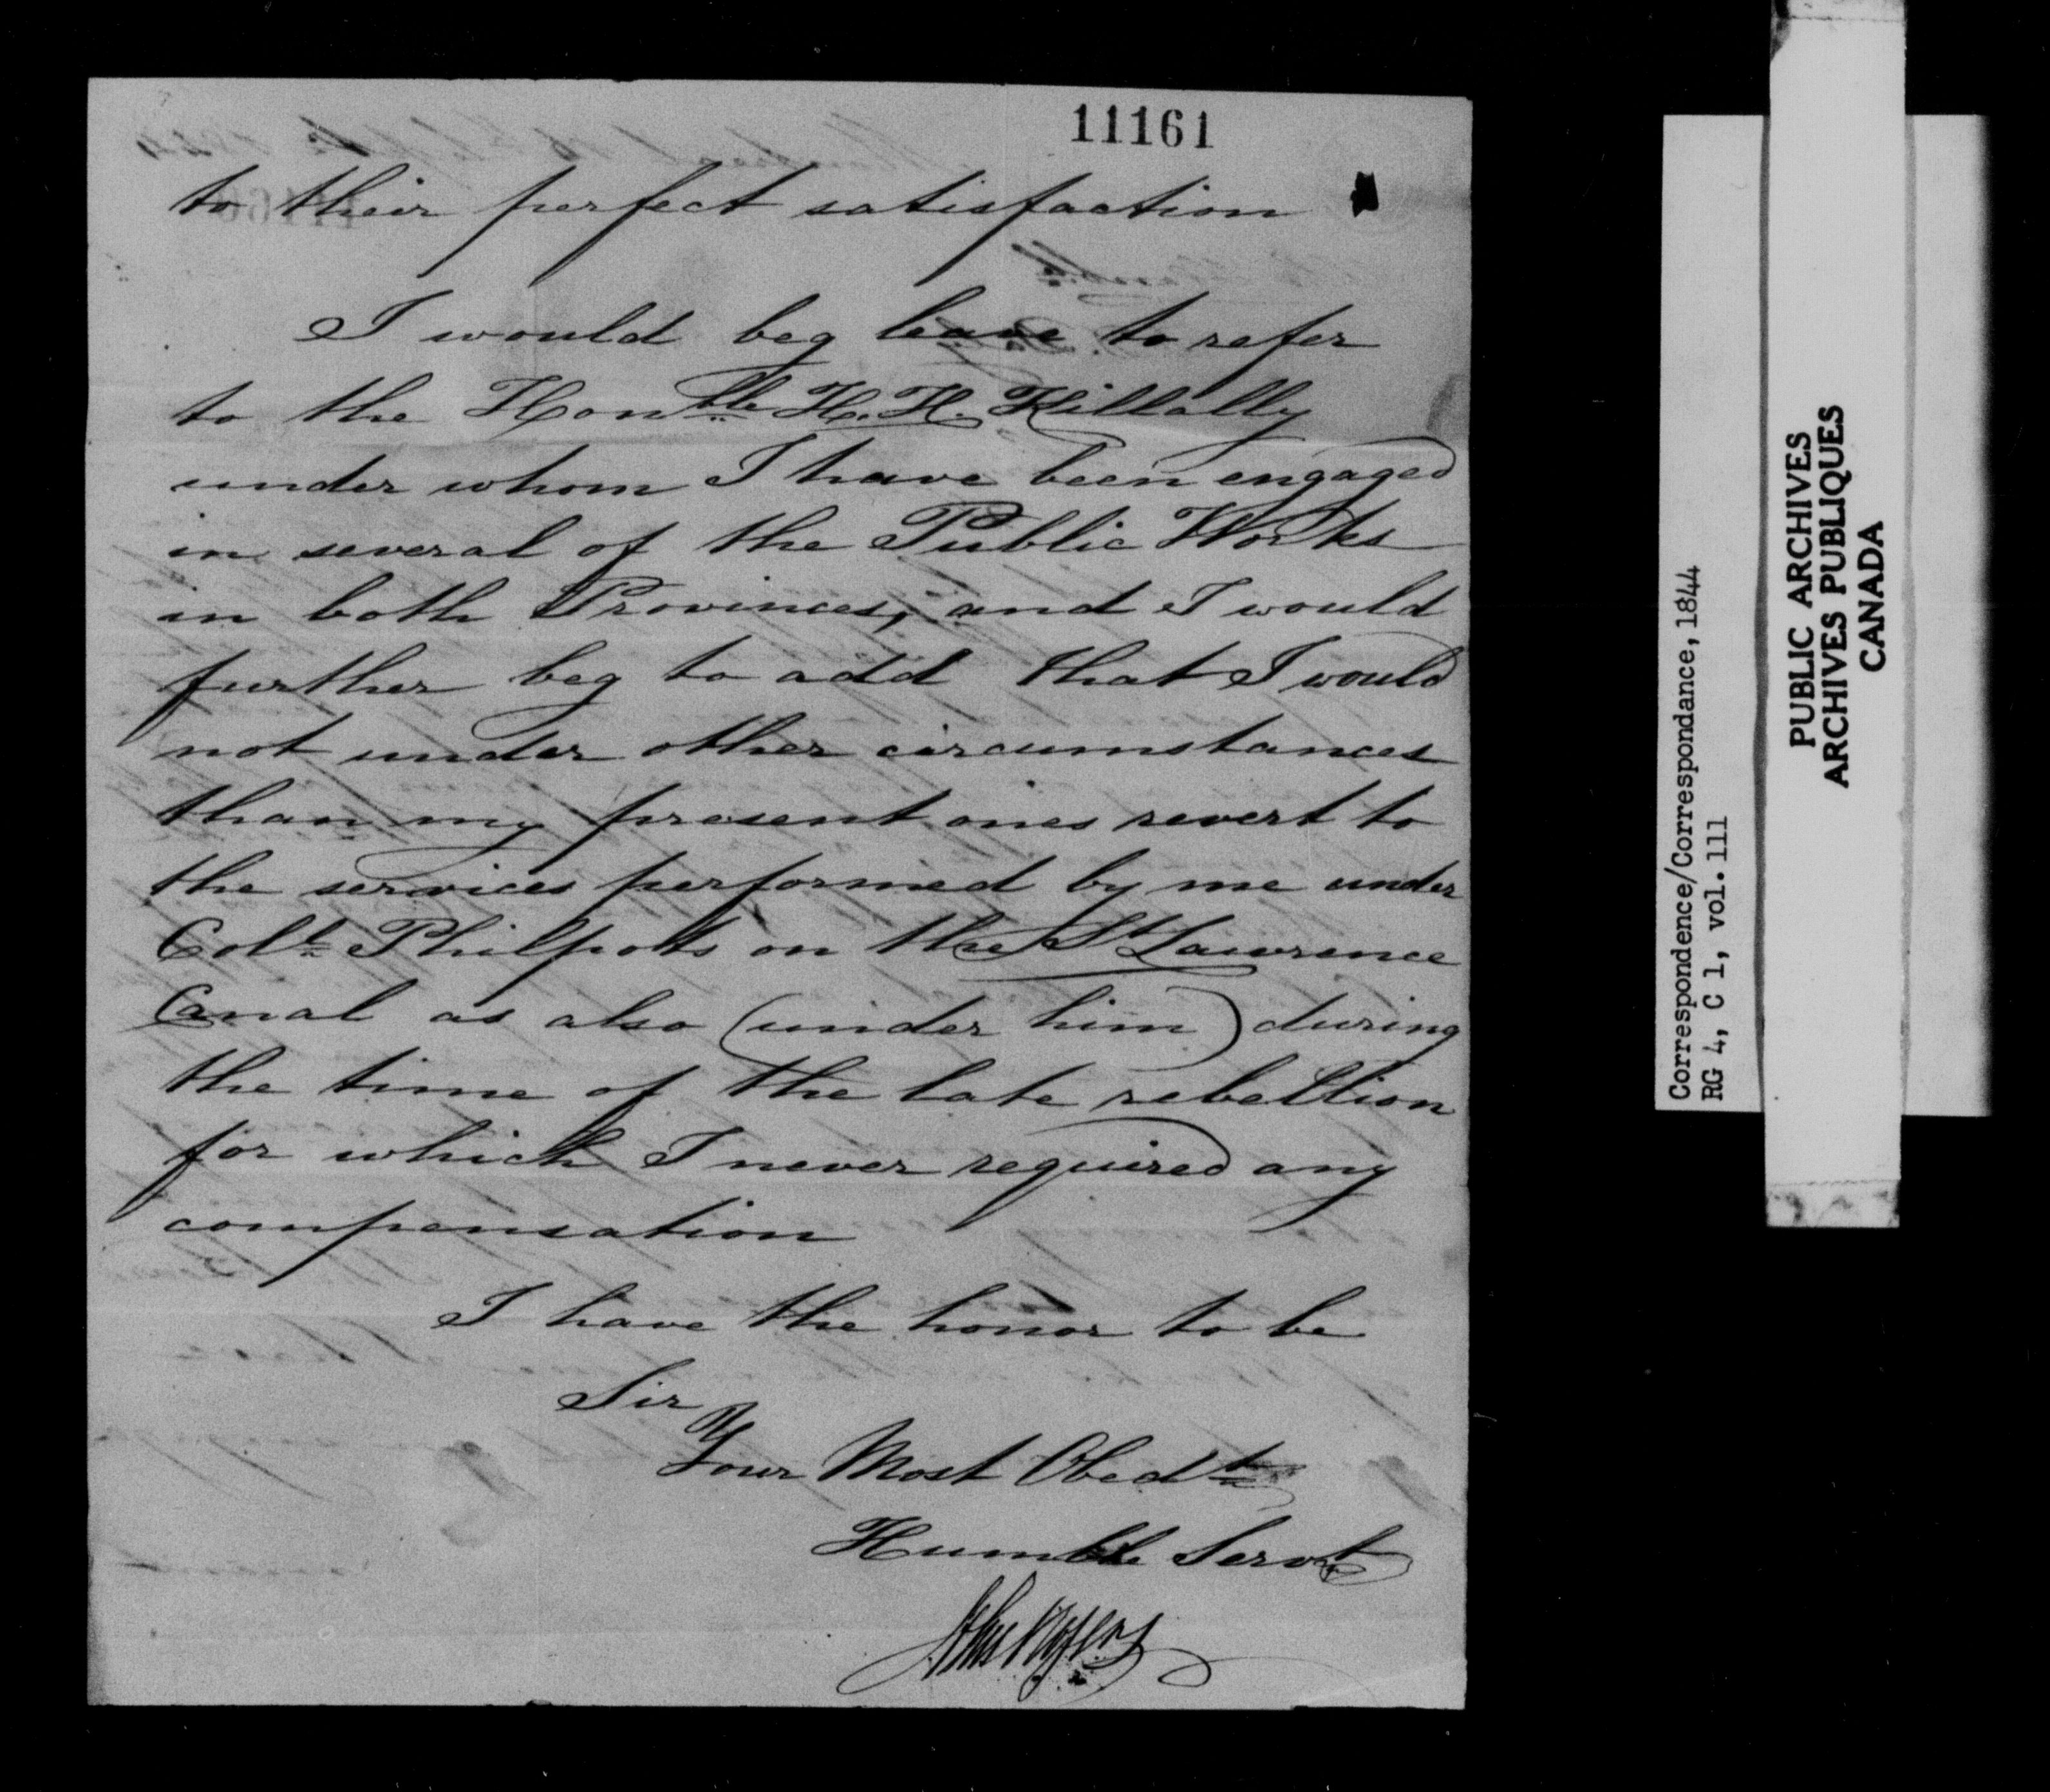 11161
to their perfect satisfaction
I would beg leave to refer
to the Honble H. H. Killally
under whom I have been engaged
in several of the Public Works
in both Provinces, and I would
further beg to add that I would
not under other circumstances
than my present ones revert to
the services performed by me under
Coll Philpots on the St Lawrence
Canal as also (under him) during
the time of the late rebellion
for which I never required any
compensation
I have the honor to be
Sir
Your Most Obedt
Humble Servt
John Rogers
Correspondence/Correspondance, 1844
RG 4, C 1, vol. 111
PUBLIC ARCHIVES
ARCHIVES PUBLIQUES
CANADA